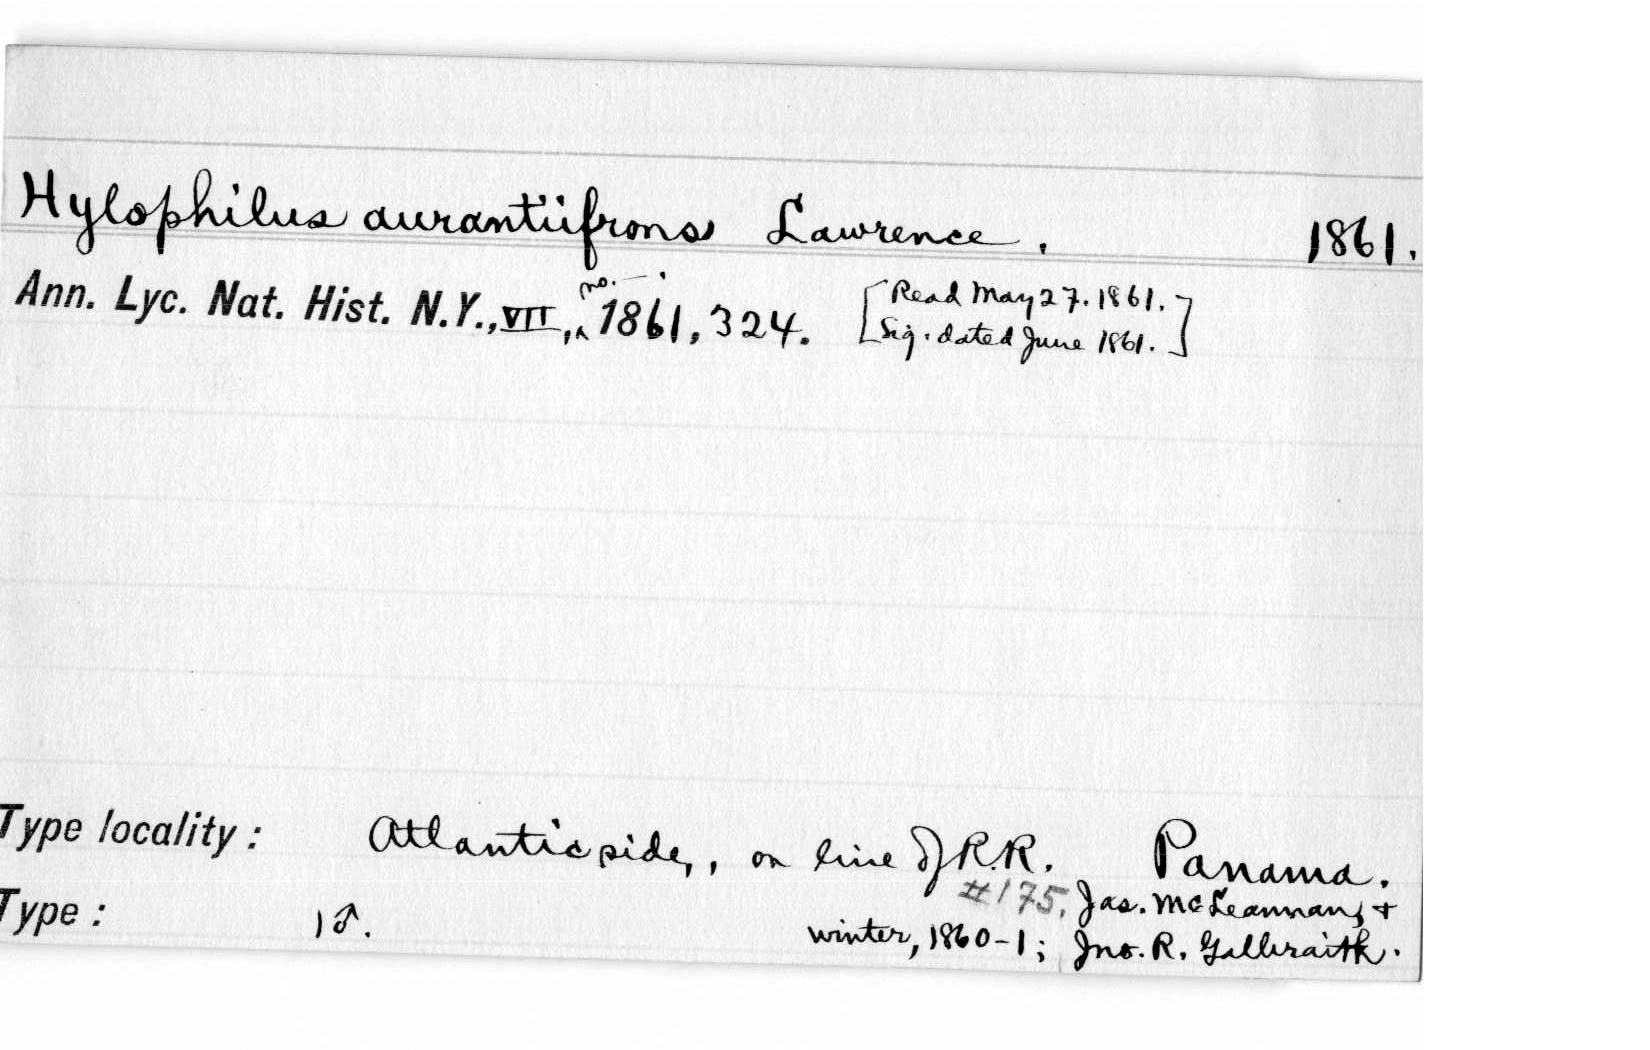 Hylophilus aurantiifrons Lawrence. 1861.
Ann. Lyc. Nat. Hist. N.Y., VII, no. —. 1861, 324. [Read May 27. 1861.
Sig. dated June 1861.]
Type locality: Atlantic side, on line of R.R. Panama.
#175. Jas. McLeannan, +
Type: 1♂. winter, 1860-1; Jno. R. Galbraith.